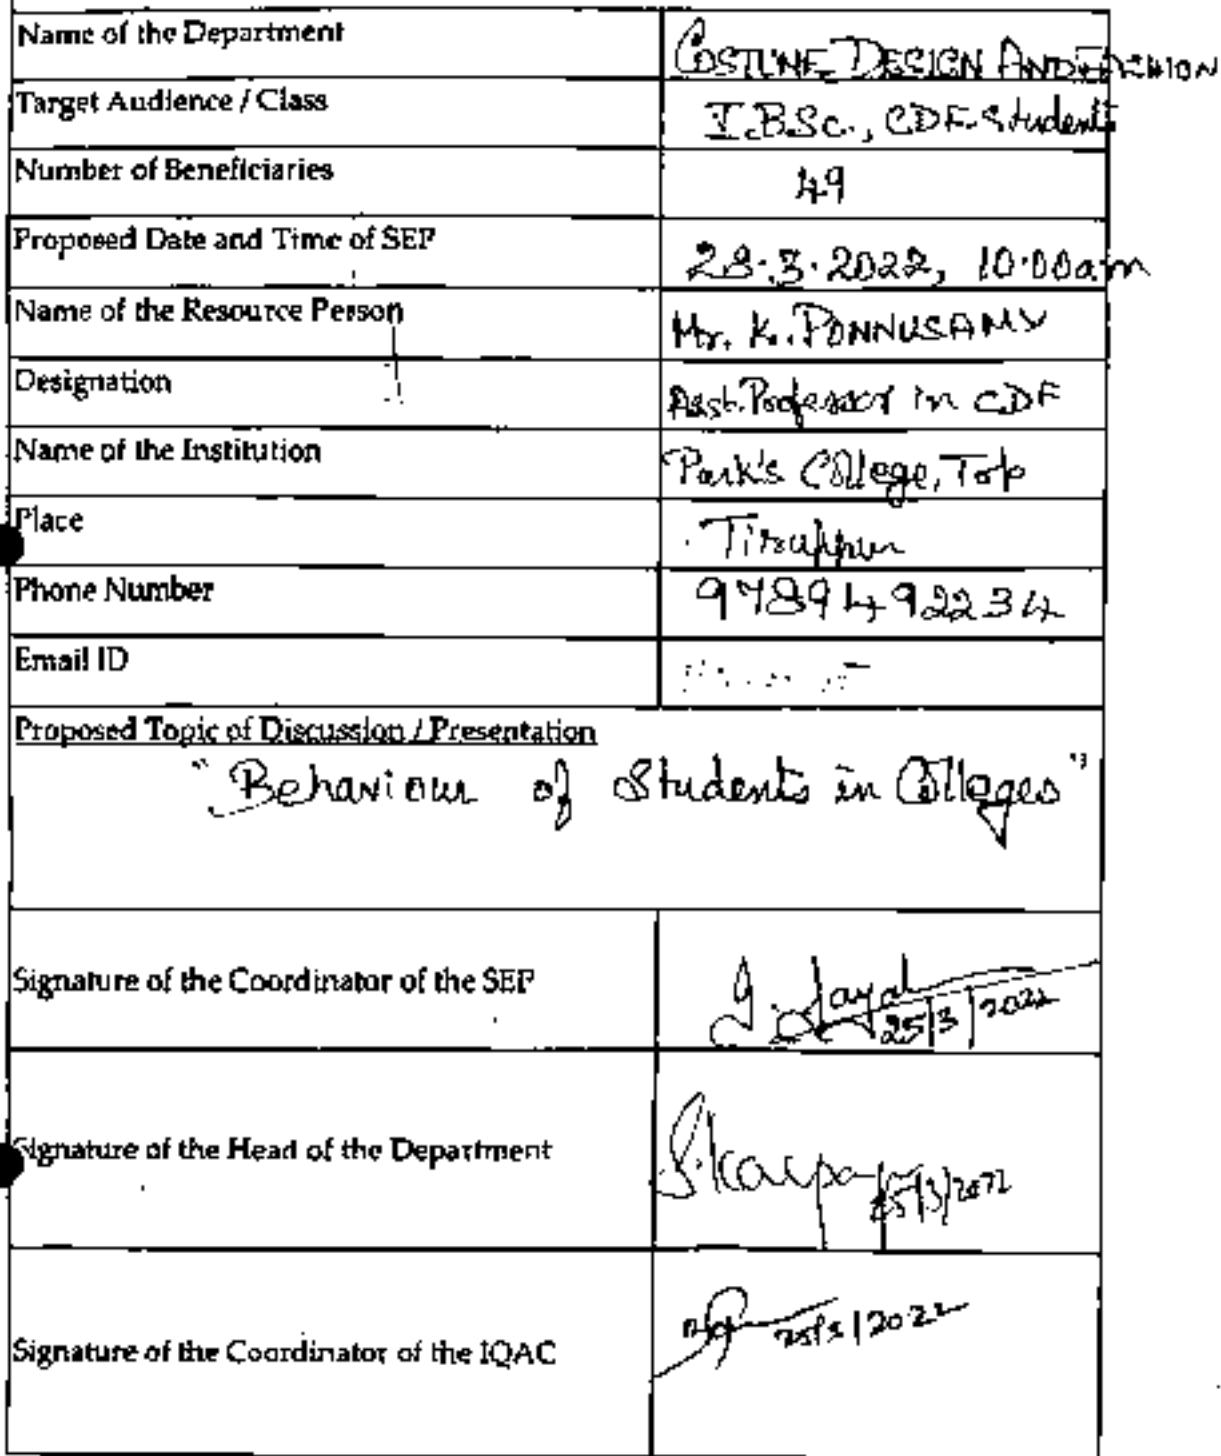 Name of the Department COSTUME DESIGN AND FASHION
Target Audience / Class I.B.Sc., CDF Students
Number of Beneficiaries 49
Proposed Date and Time of SEP 28.3.2022, 10.00am
Name of the Resource Person Mr. K. PONNUSAMY
Designation Asst. Professor in CDF
Name of the Institution Park's College, Tup
Place Tiruppur
Phone Number 9789492234
Email ID
Proposed Topic of Discussion / Presentation
"Behaviour of Students in Colleges"
Signature of the Coordinator of the SEP 25/3/2022
Signature of the Head of the Department 25/3/2022
Signature of the Coordinator of the IQAC 25/3/2022